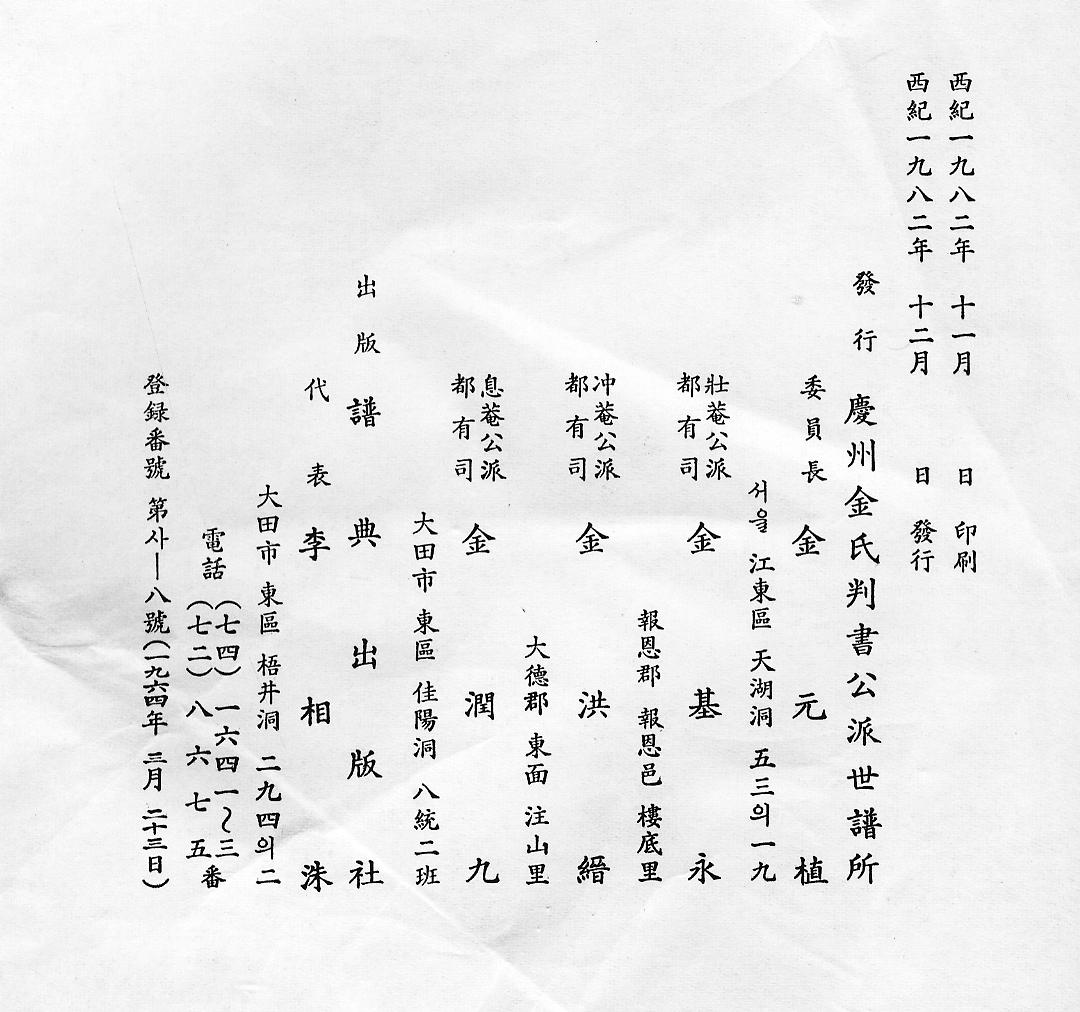 西紀一九八二年 十一月 日 印刷
西紀一九八二年 十二月 日 發行
發行 慶州金氏判書公派世譜所
委員長 金元植
서울 江東區 天湖洞 五三의一九
壯菴公派
都有司 金基永
報恩郡 報恩邑 樓底里
冲菴公派
都有司 金洪縉
大德郡 東面 注山里
息菴公派
都有司 金潤九
大田市 東區 佳陽洞 八統二班
出版 譜典出版社
代表 李相洙
大田市 東區 梧井洞 二九四의二
電話 (七四) 一六四一~三
(七二) 八六七五番
登録番號 第사—八號(一九六四年 三月 二十三日)